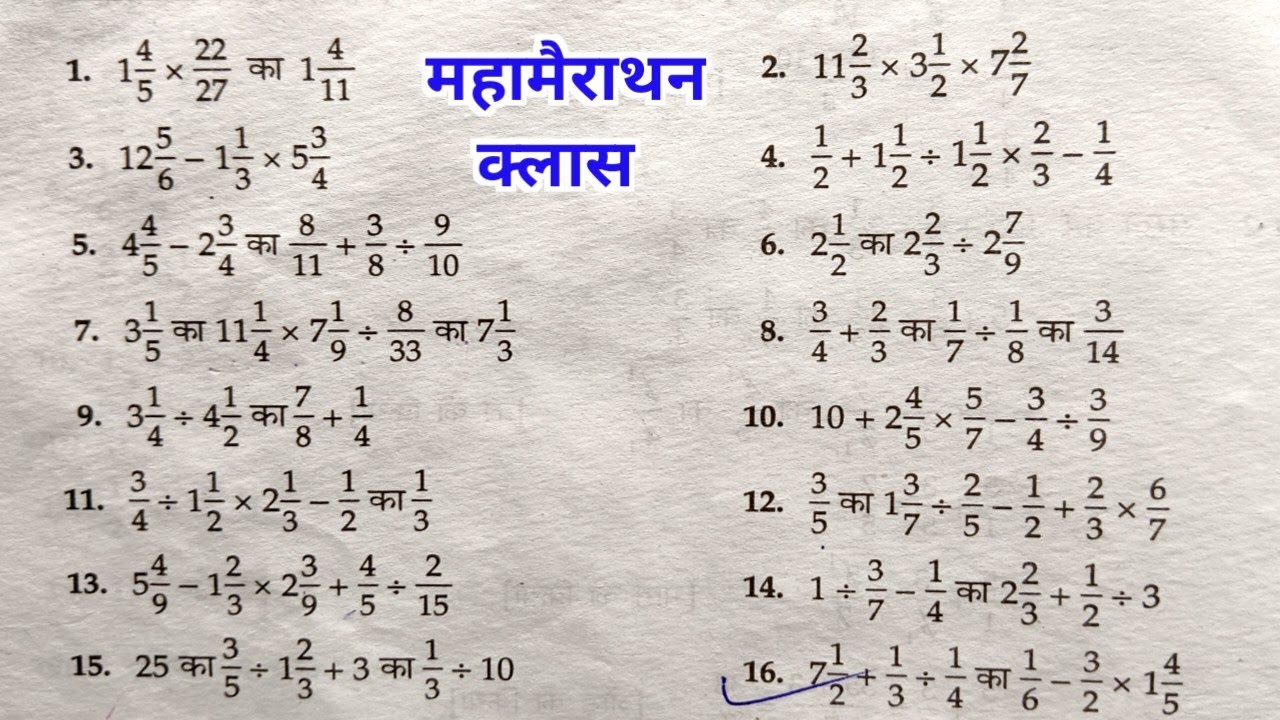 1. 1 4/5 × 22/27 का 1 4/11
महामैराथन
क्लास
2. 11 2/3 × 3 1/2 × 7 2/7
3. 12 5/6 − 1 1/3 × 5 3/4
4. 1/2 + 1 1/2 ÷ 1 1/2 × 2/3 − 1/4
5. 4 4/5 − 2 3/4 का 8/11 + 3/8 ÷ 9/10
6. 2 1/2 का 2 2/3 ÷ 2 7/9
7. 3 1/5 का 11 1/4 × 7 1/9 ÷ 8/33 का 7 1/3
8. 3/4 + 2/3 का 1/7 ÷ 1/8 का 3/14
9. 3 1/4 ÷ 4 1/2 का 7/8 + 1/4
10. 10 + 2 4/5 × 5/7 − 3/4 ÷ 3/9
11. 3/4 ÷ 1 1/2 × 2 1/3 − 1/2 का 1/3
12. 3/5 का 1 3/7 ÷ 2/5 − 1/2 + 2/3 × 6/7
13. 5 4/9 − 1 2/3 × 2 3/9 + 4/5 ÷ 2/15
14. 1 ÷ 3/7 − 1/4 का 2 2/3 + 1/2 ÷ 3
15. 25 का 3/5 ÷ 1 2/3 + 3 का 1/3 ÷ 10
16. 7 1/2 + 1/3 ÷ 1/4 का 1/6 − 3/2 × 1 4/5